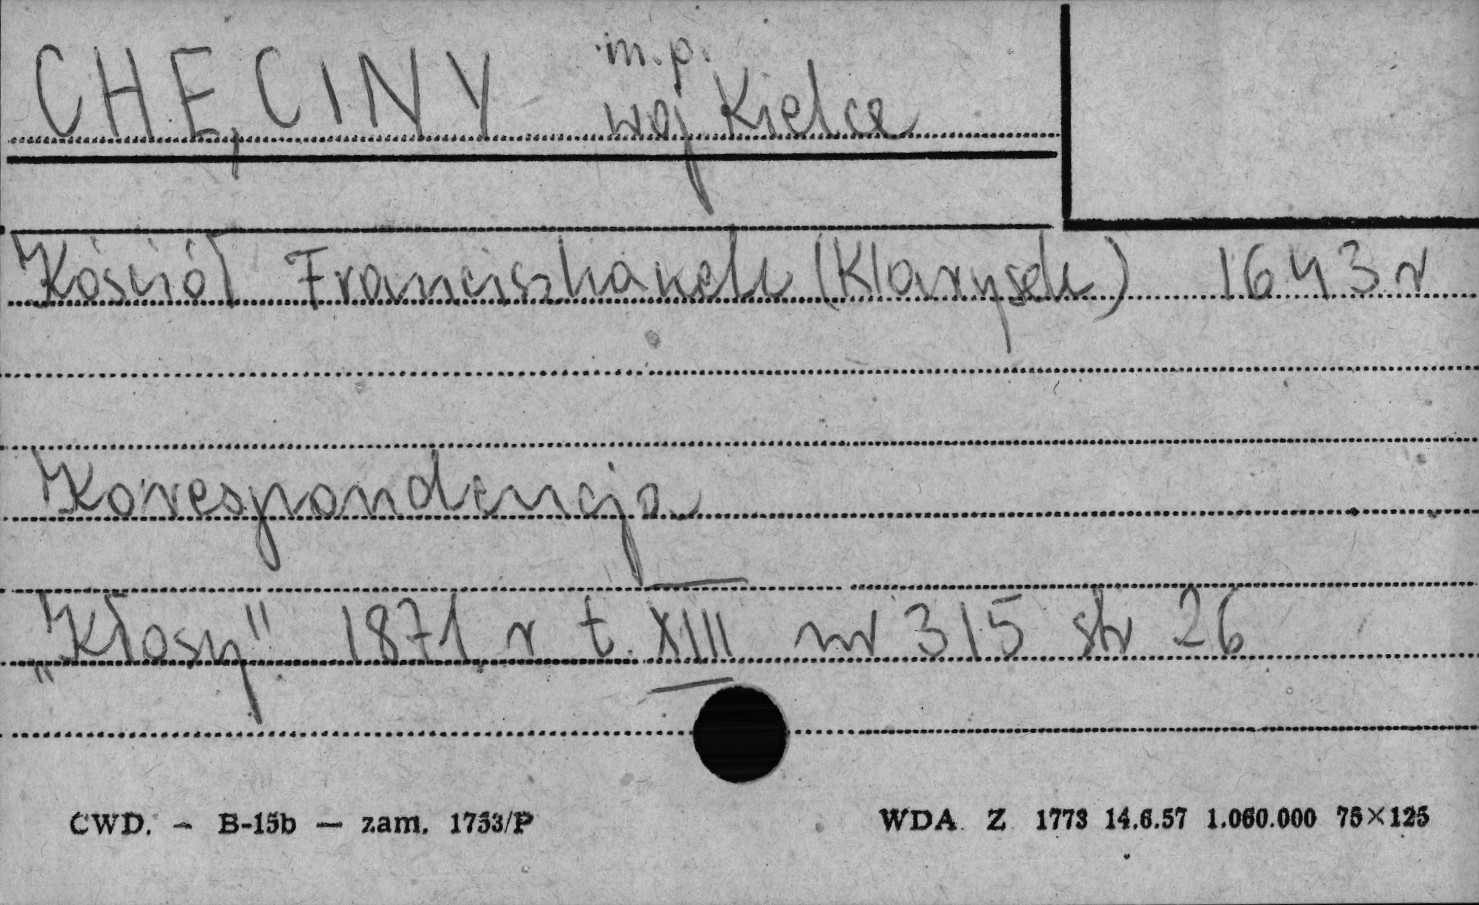 CHĘCINY m.p.
woj Kielce
Kościół Franciszkanek (Klarysek) 1643 r
Korespondencja
„Kłosy" 1871 r t. XIII nr 315 str 26
CWD. — B-15b — zam. 1753/P WDA Z 1773 14.6.57 1.060.000 75×125